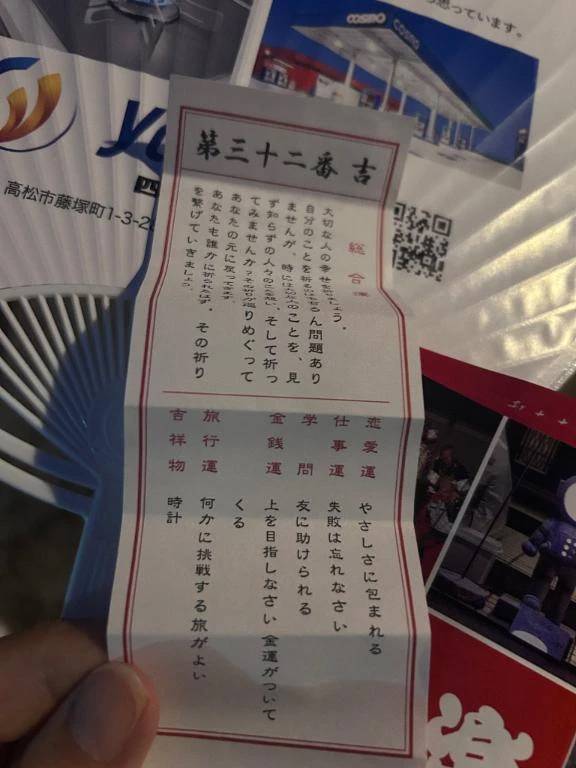 COSMO
COSMO
思っています。
高松市藤塚町1-3-2
第三十二番 吉
総合運
大切な人の幸せを祈りましょう。
自分のことを祈るのももちろん問題あり
ませんが、時にはほかの人のことを、見
ず知らずの人々のことを想い、そして祈っ
てみませんか？その祈りが巡りめぐって
あなたの元に戻ってきます。
あなたも誰かに祈られたはず。その祈り
を繋げていきましょう。
恋愛運 やさしさに包まれる
仕事運 失敗は忘れなさい
学問 友に助けられる
金銭運 上を目指しなさい 金運がついて
くる
旅行運 何かに挑戦する旅がよい
吉祥物 時計